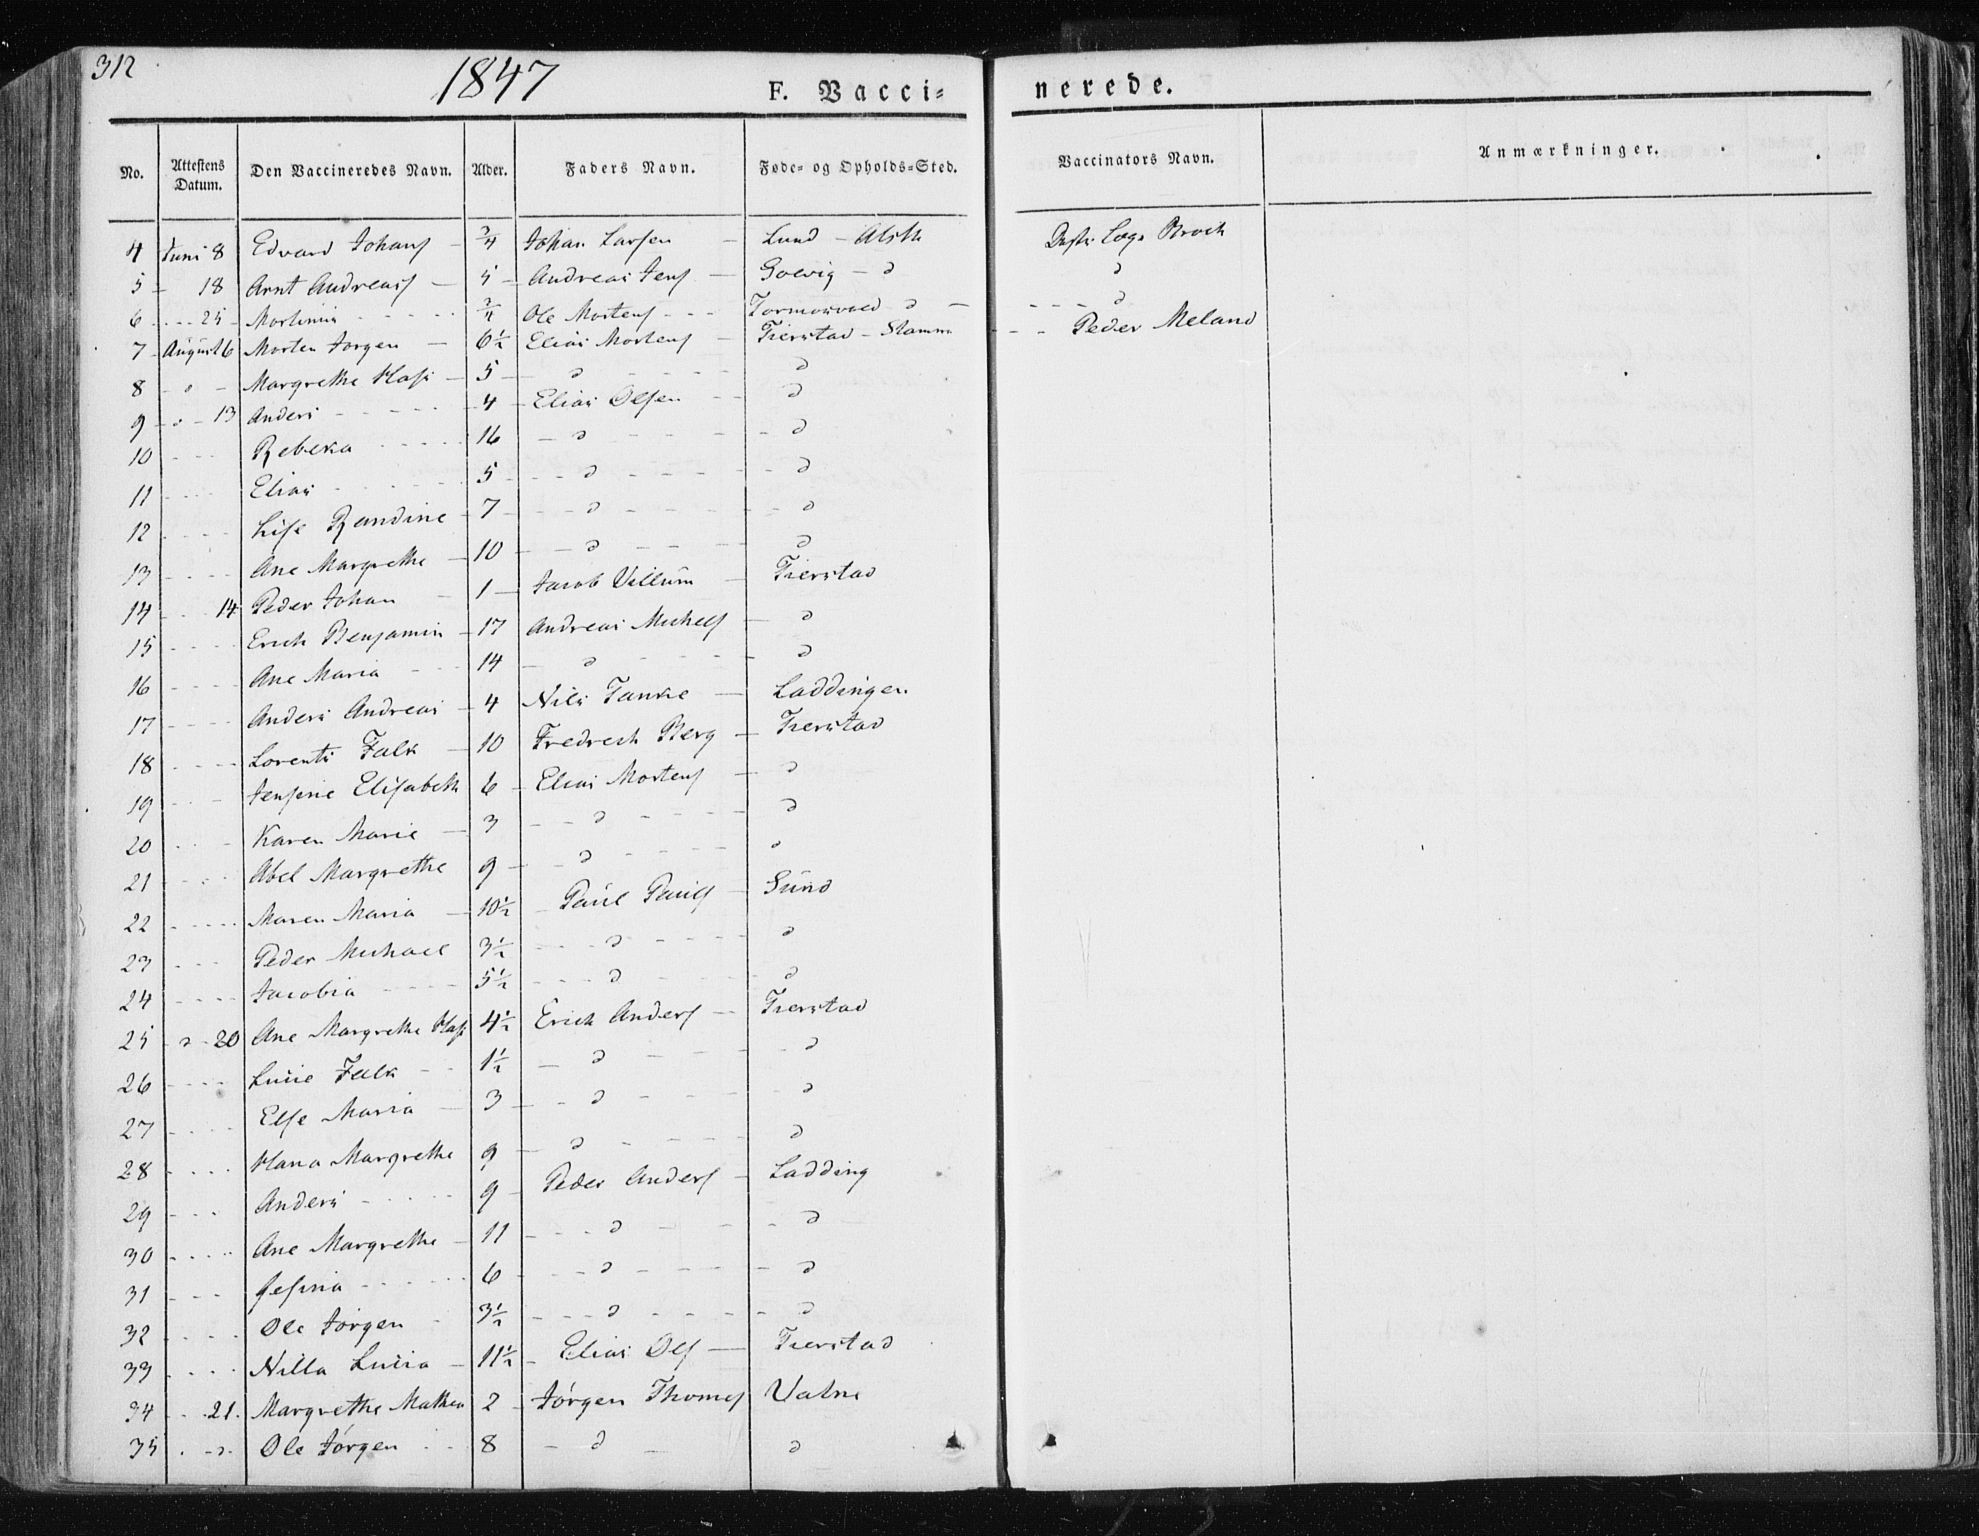 312
1847
F. Vacci-
nerede.
No. Attestens Datum. Den Vaccineredes Navn. Alder. Faders Navn. Føde- og Opholds-Sted. Vaccinators Navn. Anmærkninger.
4 Juni 8 Edvard Johans - 3/4 Johan Larsen - Lund - Alsth Brock
5 - 18 Arnt Andreass - 5 - Andreas Jens - Solvig - d d
6 - - - 25 - Mortinia - - - 3/4 Ole Mortens - - - Tormodvold d - - - - d
7 - August 6 Morten Jørgen - 6½ Elias Mortens - Tierstad - Stamn - - Peder Meland
8 - d - Margrethe Hass - 5 - d - - - d
9 - d - 13 Anders - - - 4 - Elias Olsen - - d
10 - - - Rebeka - - - 16 - d - - - d
11 - - - Elias - - - 5 - - d - - - d
12 - - - Lise Randine - 7 - - d - - - d
13 - - - Ane Margrethe - 10 - - d - - - d
14 - - 14 Peder Johan - 1 - Jacob Villum - Tierstad
15 - - - Erich Benjamin - 17 Andreas Michels - d
16 - - - Ane Maria - - - 14 - d - - - d
17 - - - Anders Andreas - 4 Nils Tanke - Laddingen
18 - - - Lorents Falk - 10 Fredrech Berg - Tierstad
19 - - - Jensine Elisabeth 6 - Elias Mortens - d
20 - - - Karen Marie - 3 - - d - - - d
21 - - - Abel Margrethe 9 - - d - - - d
22 - - - Maren Maria - 10½ - Paul Pauls - Sund
23 - - - Peder Michael 3½ - - - d - - - d
24 - - - Jacobia - - - 5½ - - - d - - - d
25 - d - 20 Ane Margrethe Hass 4½ Erich Anders - Tierstad
26 - - - Lucie Falk - - 1½ - d - - - d
27 - - - Else Maria - 3 - - d - - - d
28 - - - Hana Margrethe 9 - d - - - d
29 - - - Anders - - - 9 - Peder Anders - Ladding
30 - - - Ane Margrethe - 11 - - - d - - - d
31 - - - Jesina - - - 6 - - d - - - d
32 - - - Ole Jørgen - 3½ - - - d - - - d
33 - - - Nilla Lucia - 11½ - Elias Ols - Tierstad
34 - - 21. Margrethe Mathea 2 - Jørgen Thomes Valne
35 - - d - Ole Jørgen - - 8 - d - d